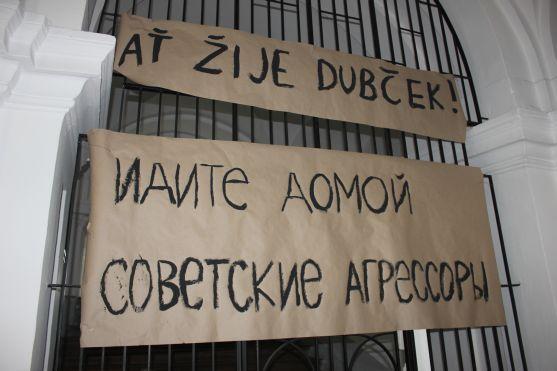 AŤ ŽIJE DUBČEK!
ИДИТЕ ДОМОЙ
СОВЕТСКИЕ АГРЕССОРЫ